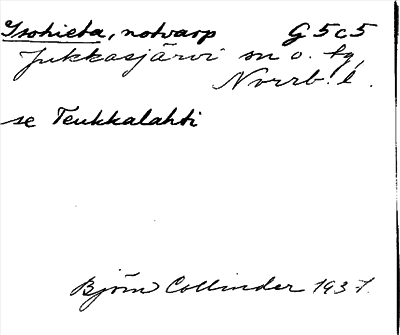 Isohieta, notvarp G5c5
Jukkasjärvi sn o. tg,
Norrb. l.
se Teukkalahti
Björn Collinder 1937.